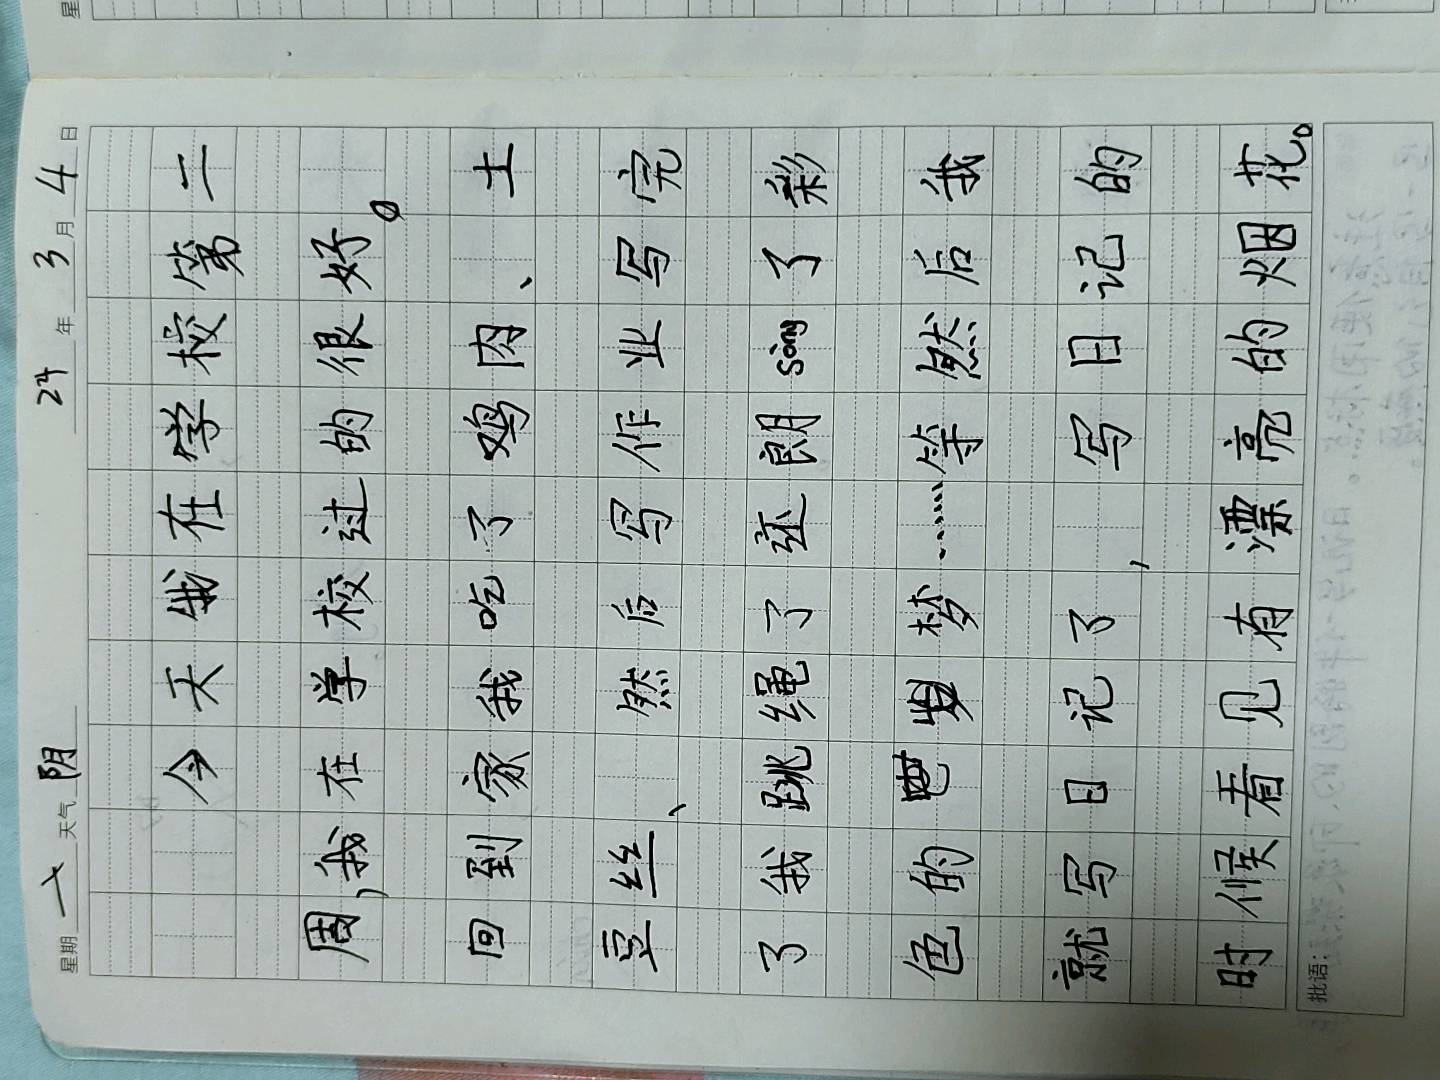 星期 一 天气 阴 24 年 3 月 4 日
今天我在学校第二
周,我在学校过的很好。
回到家我吃了鸡肉、土
豆丝、然后写作业写完
了我跳绳了还朗sòng了彩
色的梦……等然后我
就写日记了,写日记的
时候看见有漂亮的烟花。
批语: